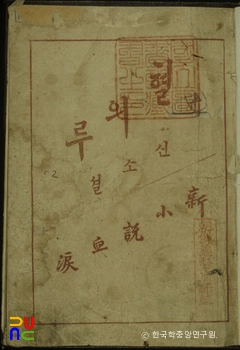 혈의루
신소셜
新小說血淚
© 한국학중앙연구원